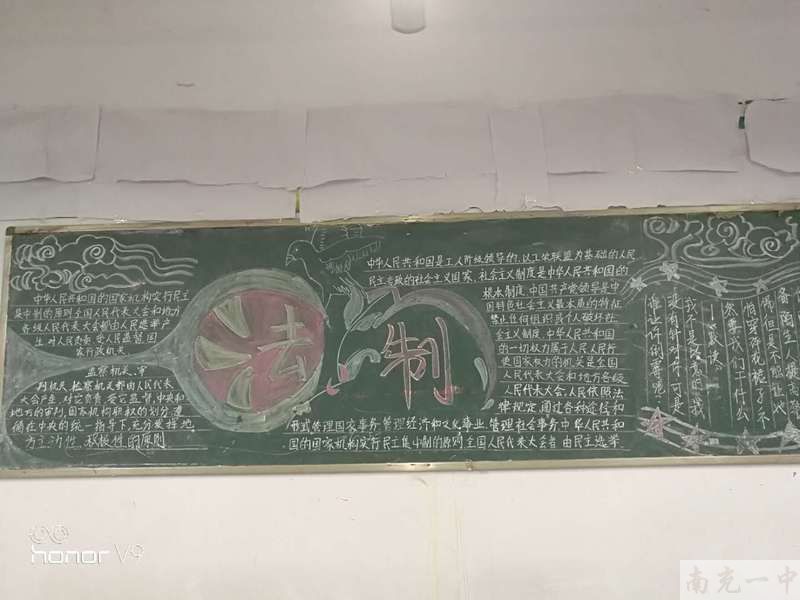 中华人民共和国的国家机构实行民主
集中制的原则全国人民代表大会和地方
各级人民代表大会都由人民选举产
生,对人民负责,受人民监督,国
家行政机关
监察机关、审
判机关,检察机关都由人民代表
大会产生,对它负责,受它监督,中央和
地方的审判,国家机构职权的划分,遵
循在中央的统一指导下,充分发挥地
方主动性,积极性的原则
法
制
中华人民共和国是工人阶级领导的,以工农联盟为基础的人民
民主专政的社会主义国家,社会主义制度是中华人民共和国的
根本制度,中国共产党领导是中
国特色社会主义最本质的特征
禁止任何组织或个人破坏社
会主义制度,中华人民共和国
的一切权力属于人民人民行
使国家权力的机关是全国
人民代表大会和地方各级
人民代表大会,人民依照法
律规定,通过各种途径和
形式管理国家事务,管理经济和文化事业,管理社会事务中华人民共和
国的国家机构实行民主集中制的原则全国人民代表大会者由民主选举
我在是
没有绝对许可是
谁让你倒霉呢
然要我们干什么
但是不能
honor V9
南充一中